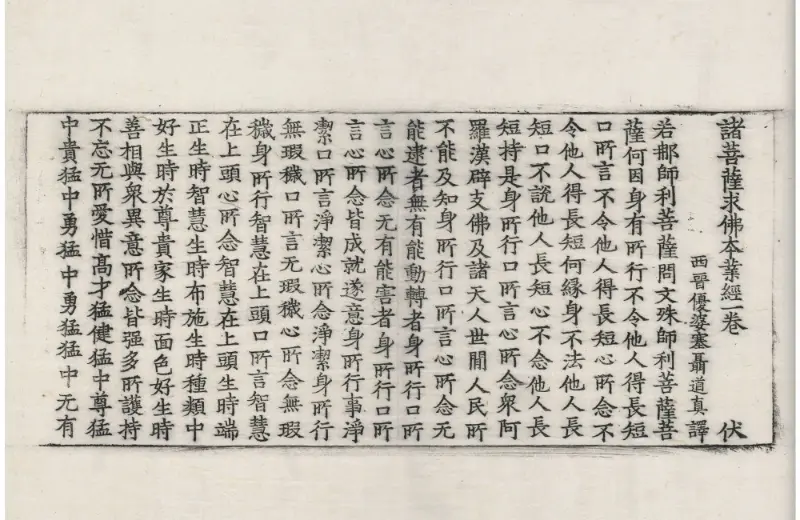 諸菩薩求佛本業經一卷 伏
西晉優婆塞聶道真譯
若那師利菩薩問文殊師利菩薩菩
薩何因身有所行不令他人得長短
口所言不令他人得長短心所念不
令他人得長短何緣身不法他人長
短口不說他人長短心不念他人長
短持是身所行口所言心所念衆阿
羅漢辟支佛及諸天人世間人民所
不能及知身所行口所言心所念无
能逮者無有能動轉者身所行口所
言心所念无有能害者身所行口所
言心所念皆成就遂意身所行事淨
潔口所言淨潔心所念淨潔身所行
無瑕穢口所言无瑕穢心所念無瑕
穢身所行智慧在上頭口所言智慧
在上頭心所念智慧在上頭生時端
正生時智慧生時布施生時種類中
好生時於尊貴家生時面色好生時
善相與衆異意所念皆强多所護持
不忘无所愛惜髙才猛健猛中尊猛
中貴猛中勇猛中勇猛猛中无有